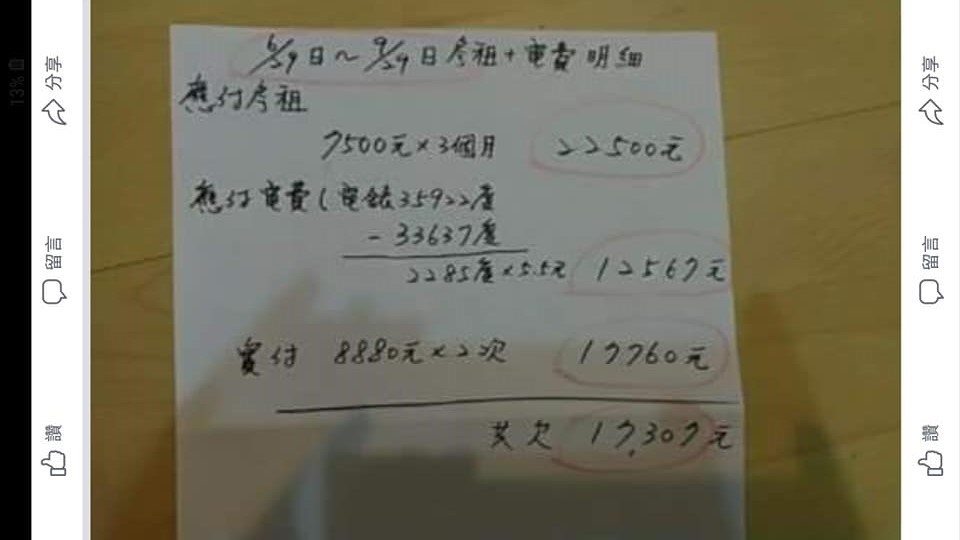 6/29日～9/29日房租+電費明細
應付房租
7500元×3個月 22500元
應付電費(電錶35922度
-33637度
2285度×5.5元 12567元
實付 8880元×2次 17760元
共欠 17,307元
13%
分享
留言
讚
分享
留言
讚